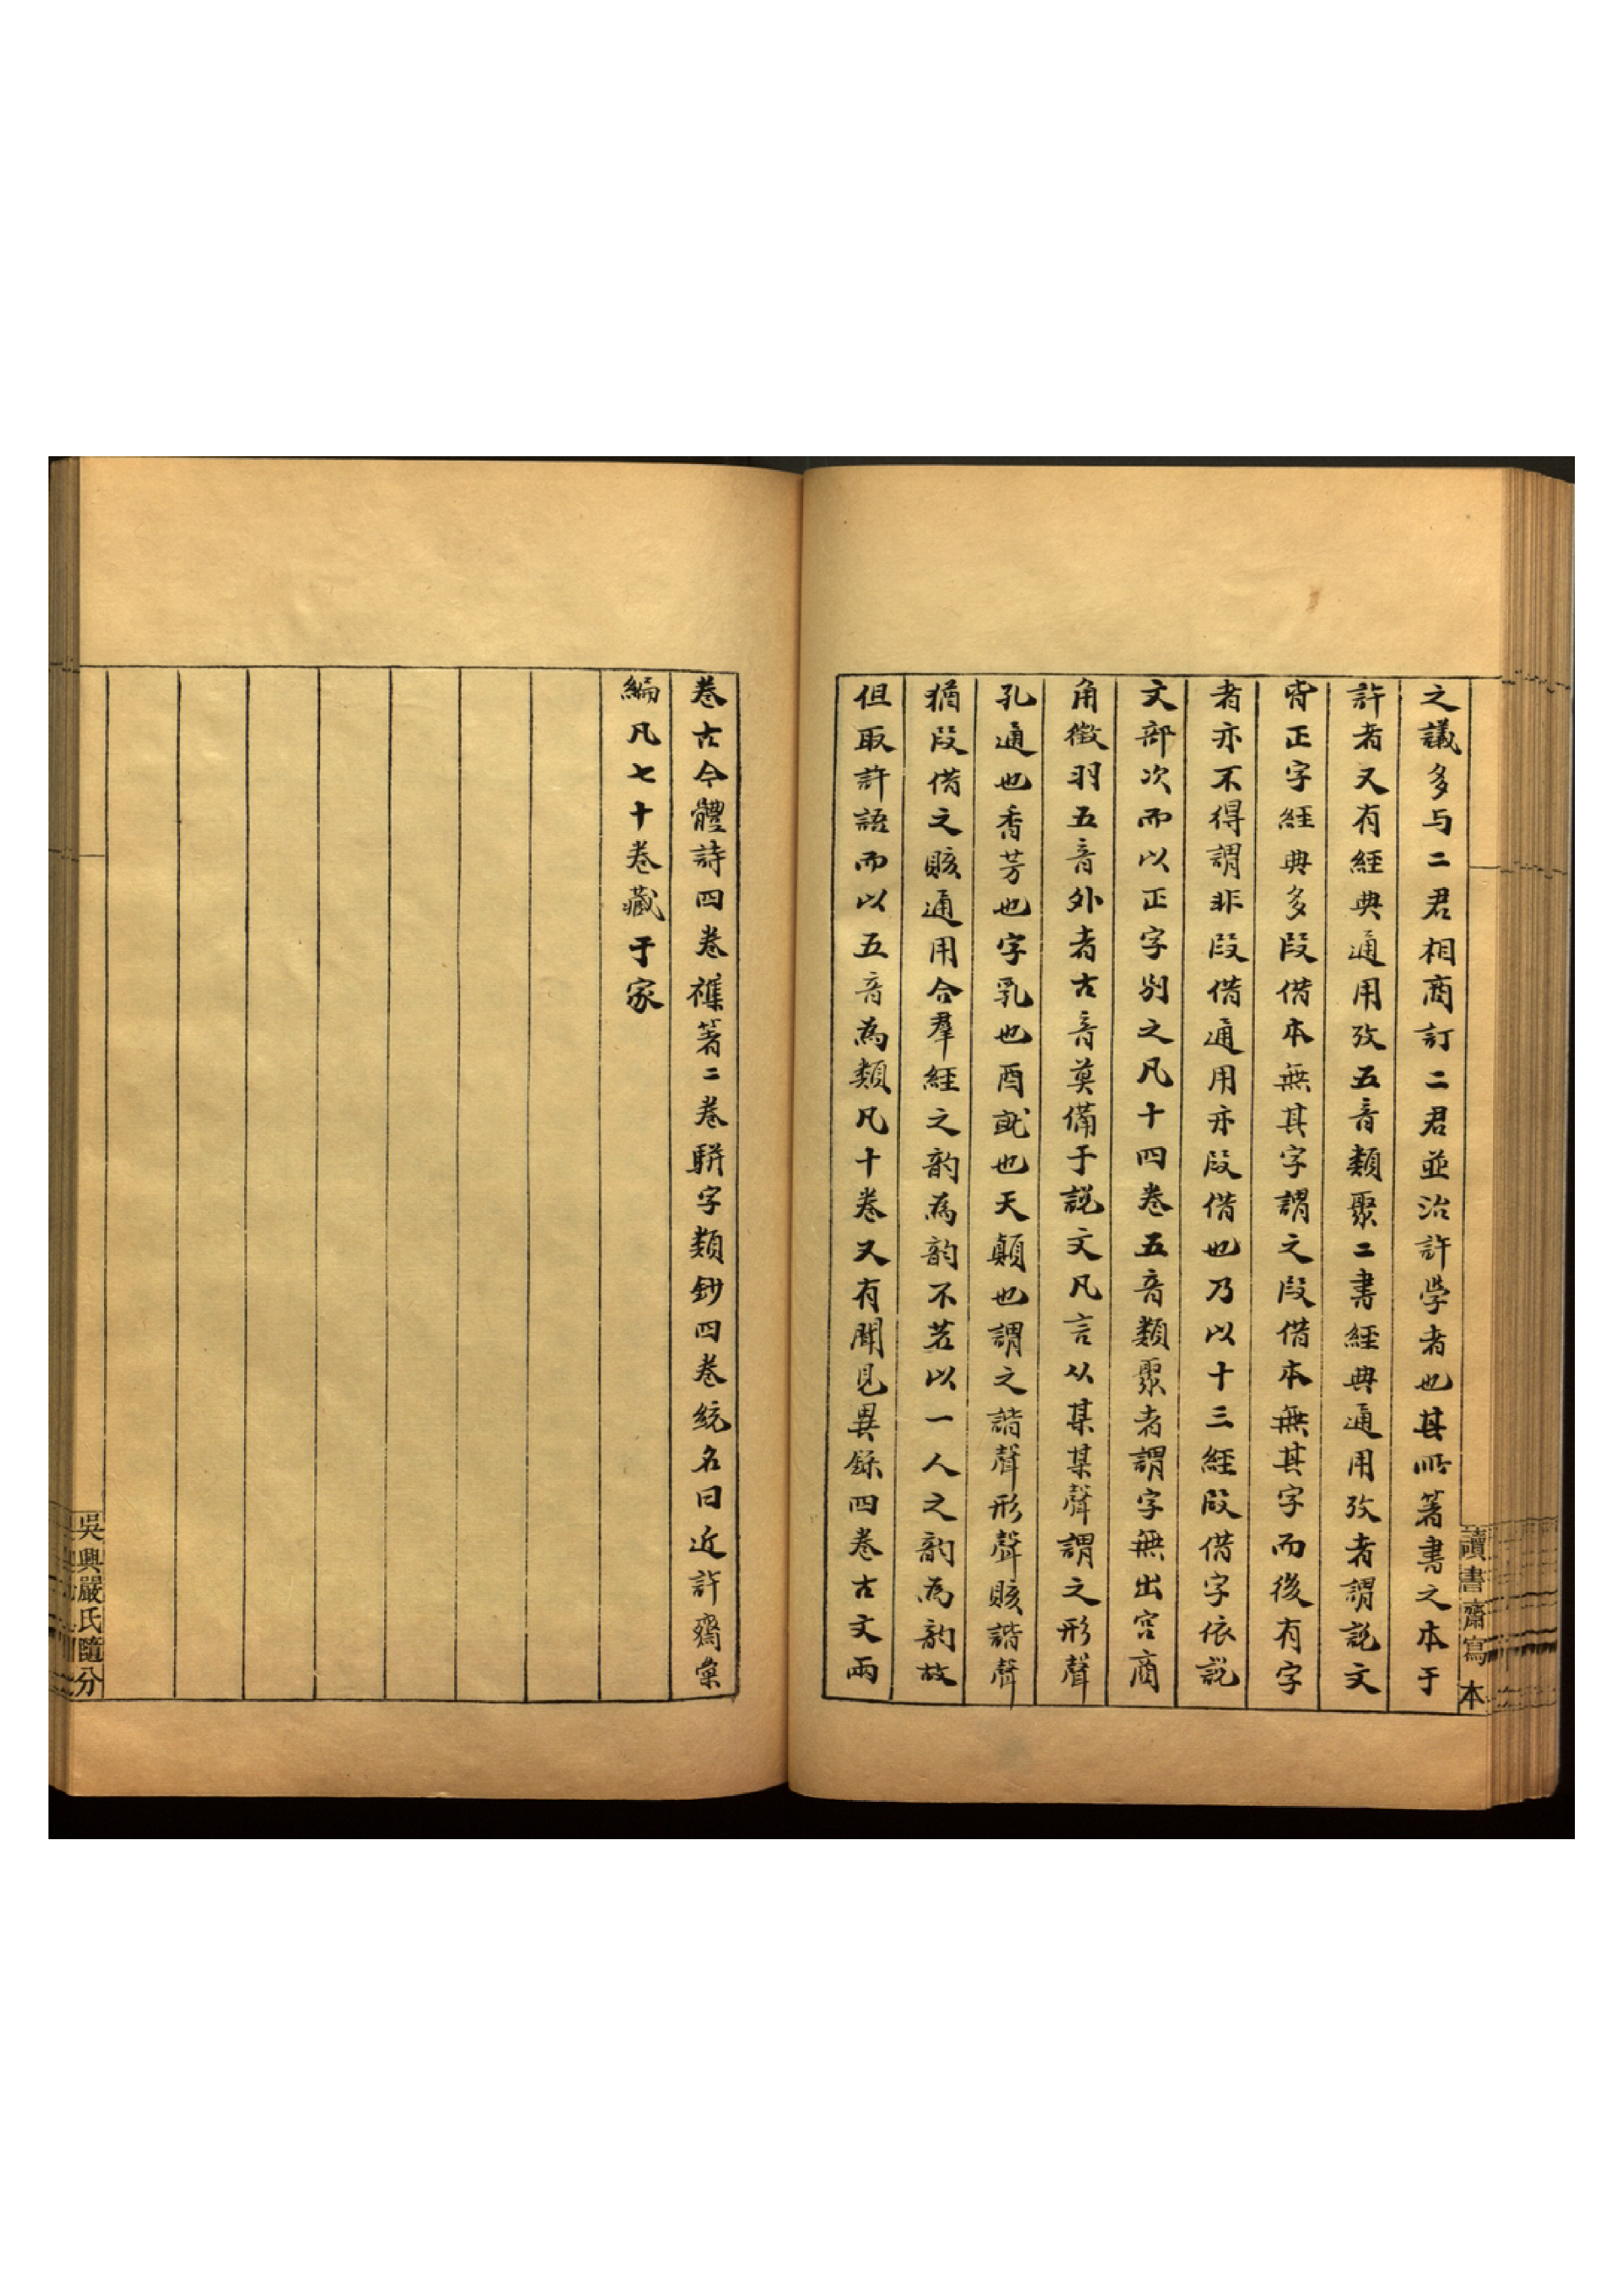 讀書齋寫本
之議多与二君相商訂二君並治許學者也其所著書之本于
許者又有經典通用攷五音類聚二書經典通用攷者謂說文
皆正字經典多叚借本無其字謂之叚借本無其字而後有字
者亦不得謂非叚借通用亦叚借也乃以十三經叚借字依說
文部次而以正字別之凡十四卷五音類聚者謂字無出宮商
角徵羽五音外者古音莫備于說文凡言从某某聲謂之形聲
孔通也香芳也字乳也酉就也天顚也謂之諧聲形聲賅諧聲
猶叚借之賅通用合羣經之韵為韵不若以一人之韵為韵故
但取許語而以五音為類凡十卷又有聞見異錄四卷古文兩
卷古今體詩四卷襍著二卷駢字類鈔四卷統名曰近許齋稾
編凡七十卷藏于家
吳興嚴氏隨分